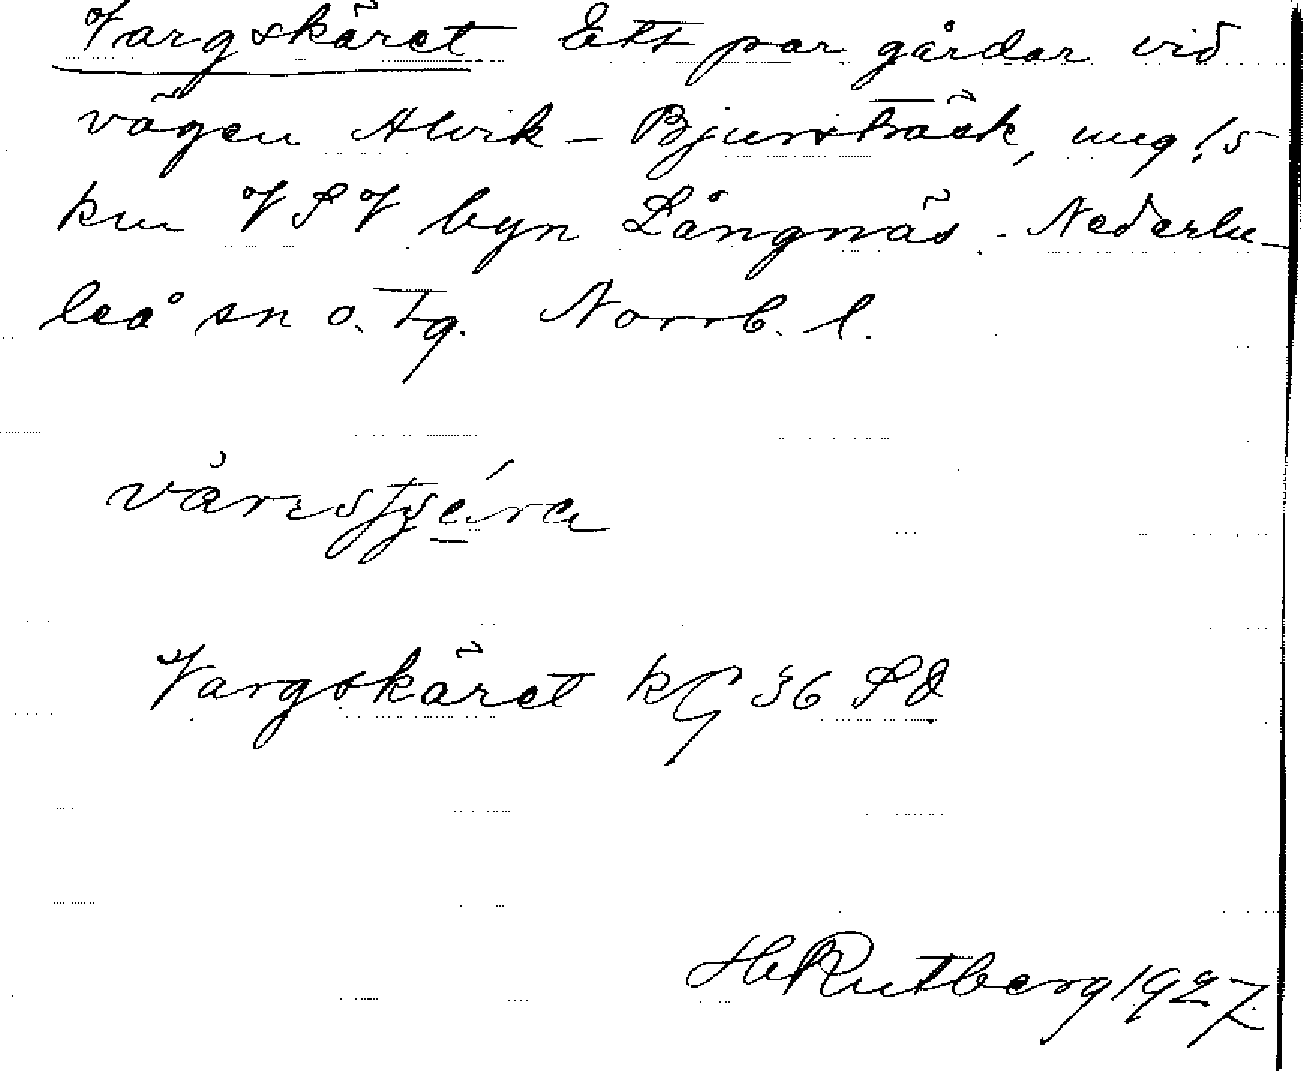 Vargskäret Ett par gårdar vid
vägen Alvik - Bjursträsk, ung 1,5
km VSV byn Långnäs. Nederlu-
leå sn o. tg. Norrb. l.
Vargskäret kG 36 SO
H Rutberg 1927